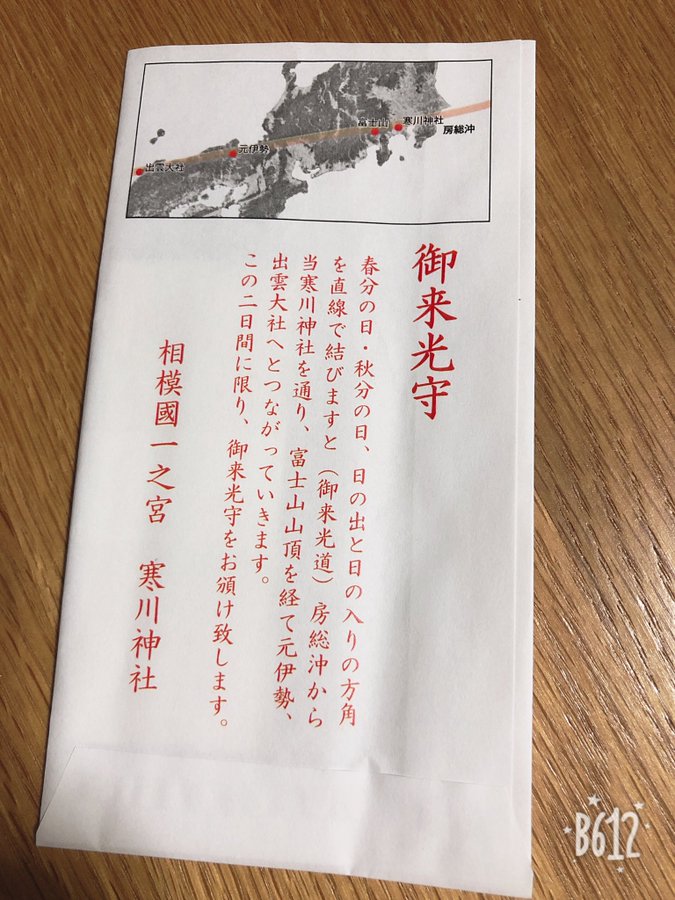 出雲大社
元伊勢
富士山
寒川神社
房総沖
御来光守
春分の日・秋分の日、日の出と日の入りの方角
を直線で結びますと（御来光道）房総沖から
当寒川神社を通り、富士山山頂を経て元伊勢、
出雲大社へとつながっていきます。
この二日間に限り、御来光守をお頒け致します。
相模國一之宮 寒川神社
B612